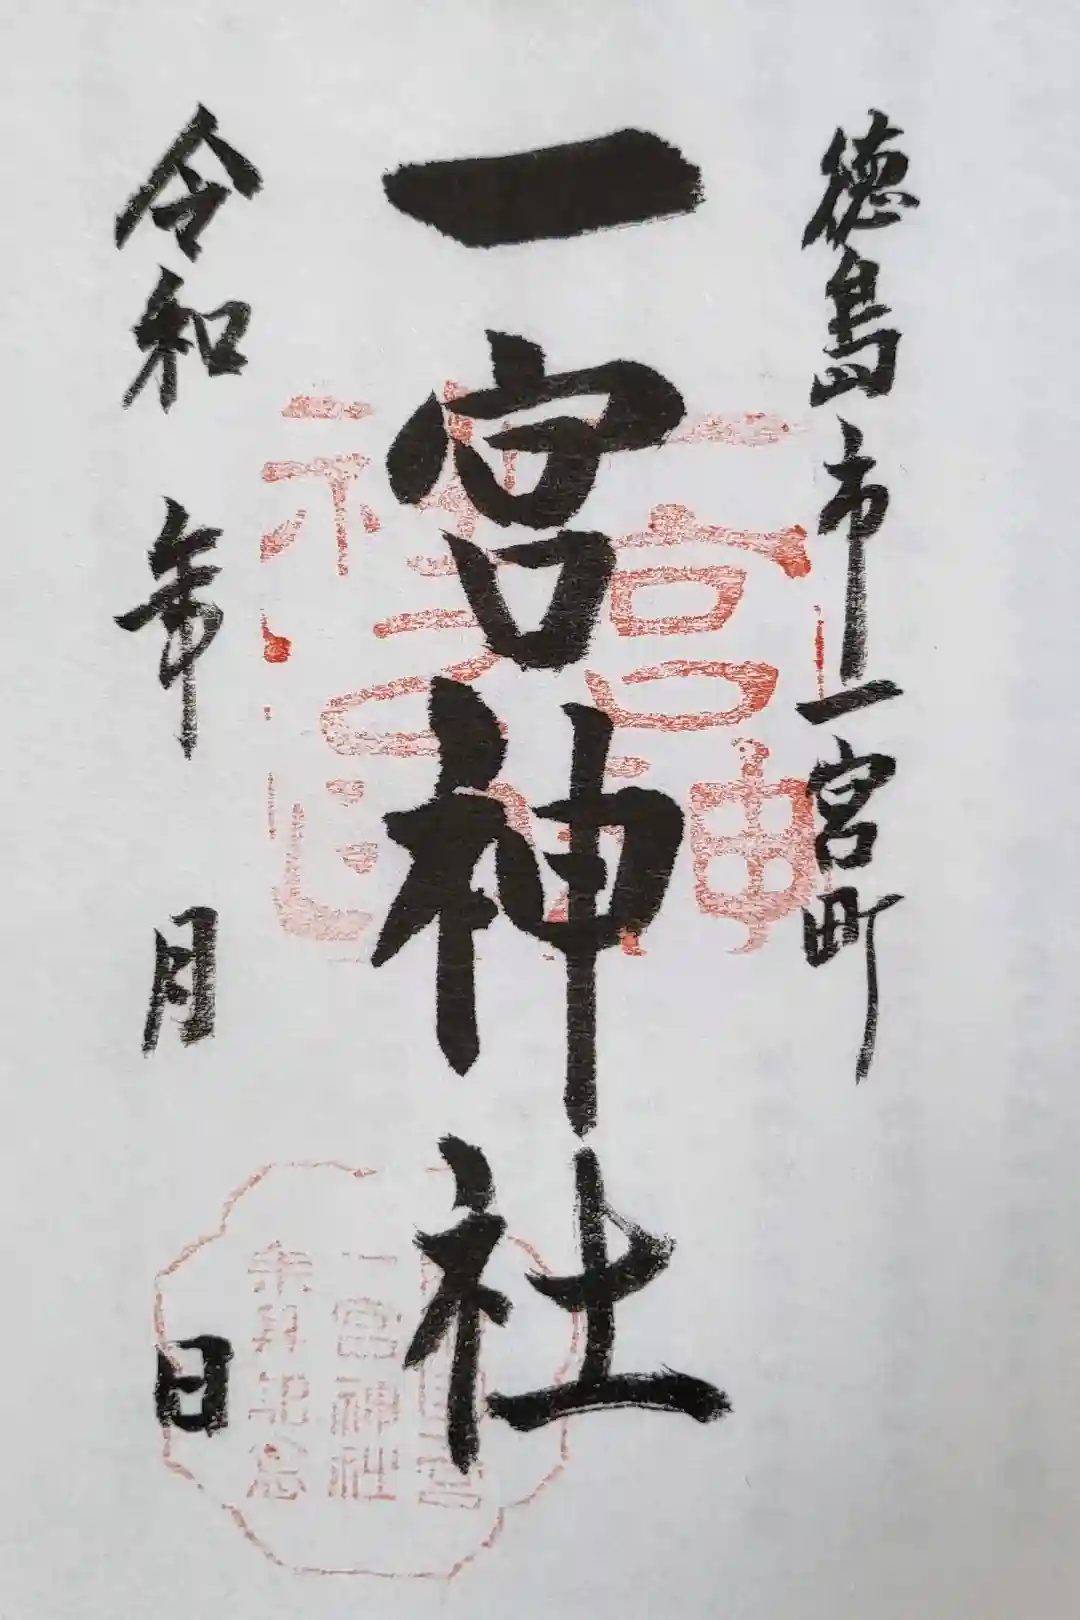 徳島市一宮町
一宮神社
令和 年 月 日
一宮神社
参拝記念